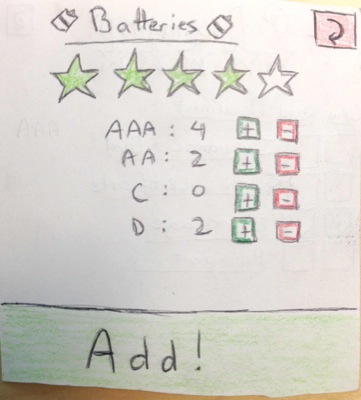 Batteries
AAA: 4 + -
AA: 2 + -
C: 0 + -
D: 2 + -
Add!